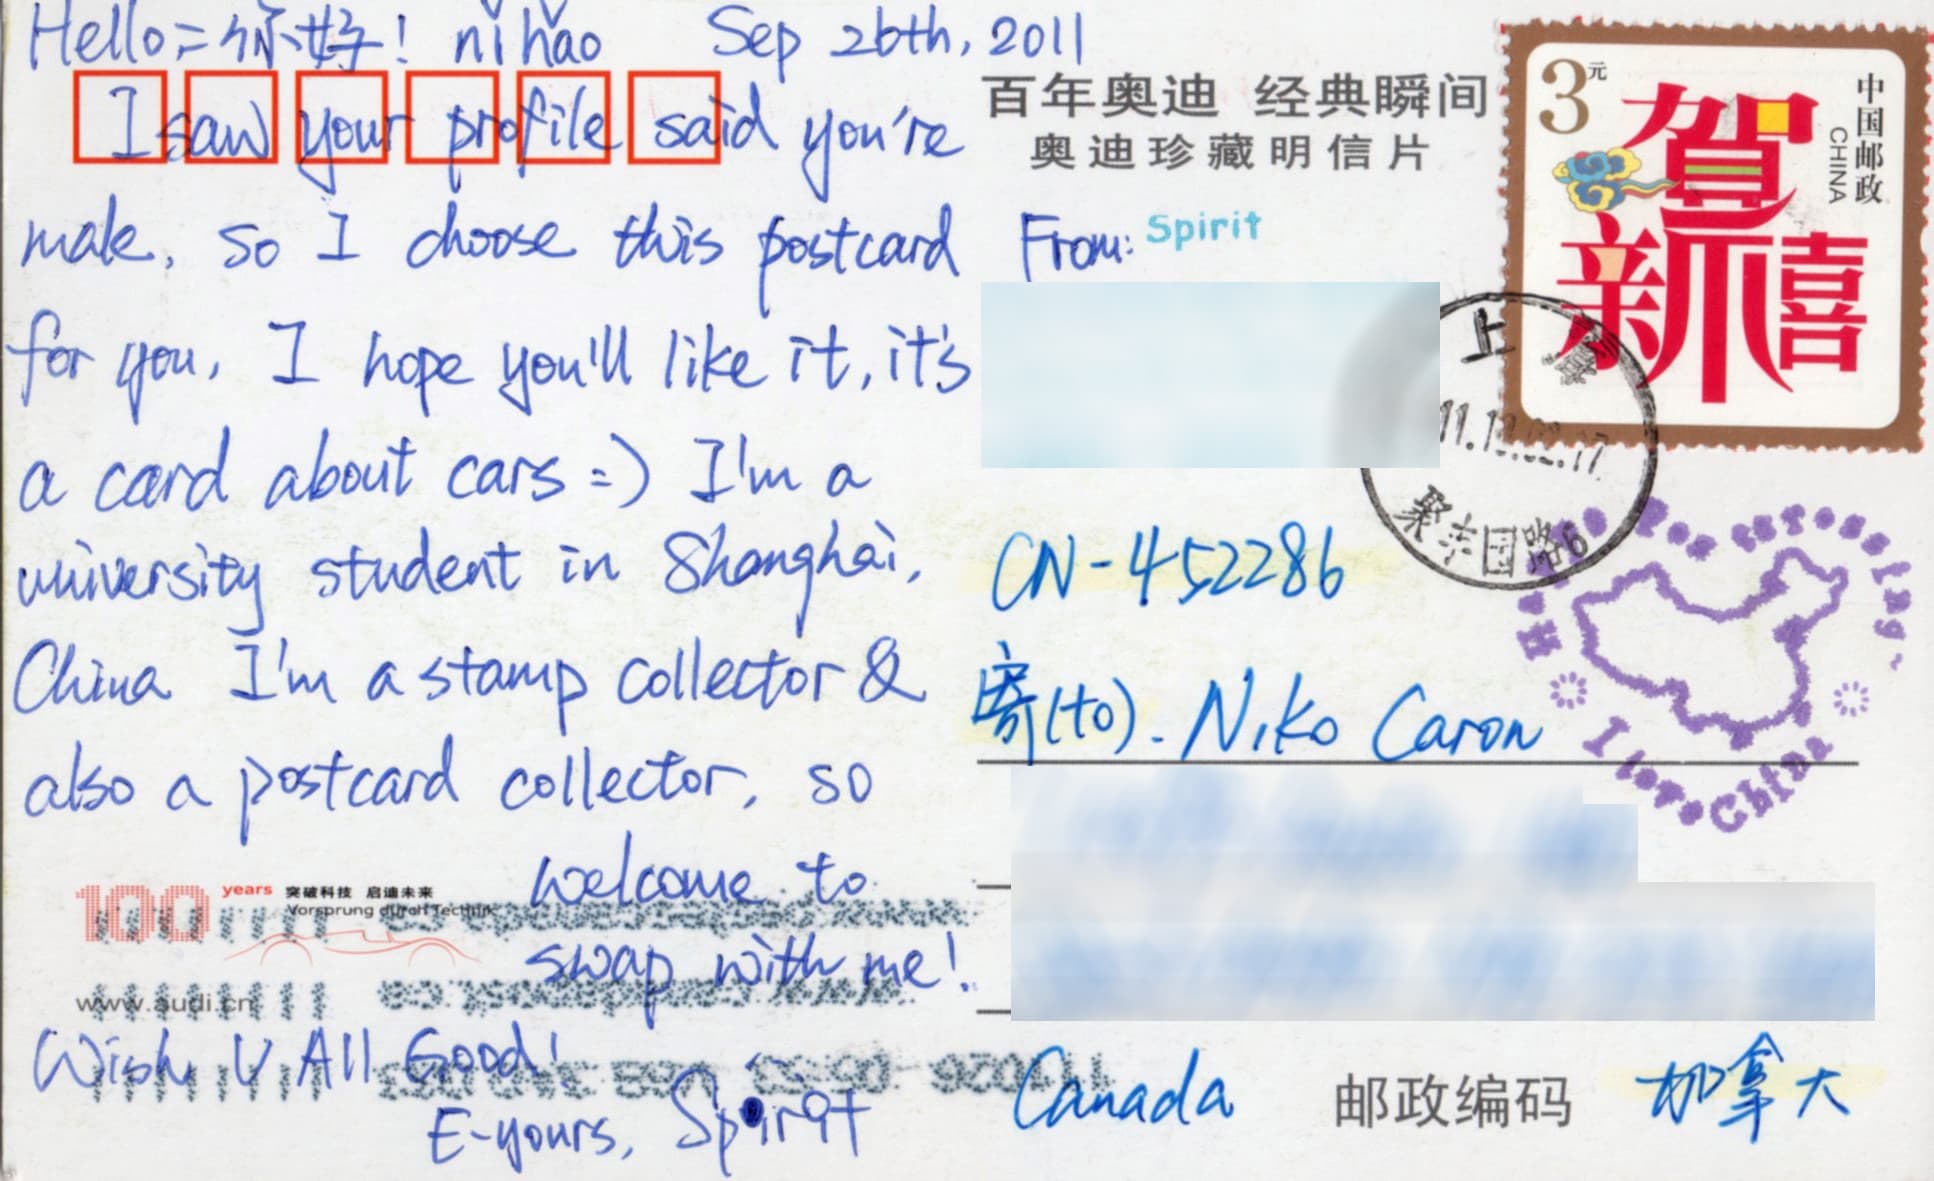 Hello = 你好! nǐ hǎo Sep 26th, 2011
I saw your profile said you're
male, so I choose this postcard
for you, I hope you'll like it, it's
a card about cars =) I'm a
university student in Shanghai,
China I'm a stamp collector &
also a postcard collector, so
welcome to
swap with me!
Wish U All Good!
E-yours, Spirit
100 years 突破科技 启迪未来
Vorsprung durch Technik
www.audi.cn
百年奥迪 经典瞬间
奥迪珍藏明信片
From: Spirit
CN-452286
寄(to). Niko Caron
Canada 邮政编码 加拿大
3元
中国邮政
CHINA
贺
新禧
上海
I love China